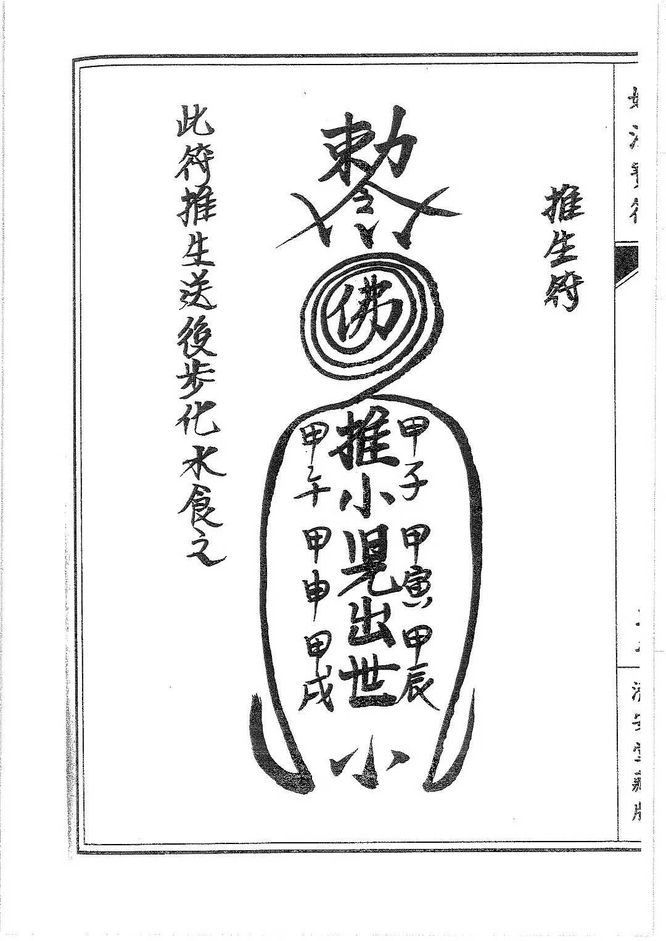 推生符
勅令
佛
甲子 甲寅 甲辰
推小児出世
甲午 甲申 甲戌
小
此符推生送後步化水食之